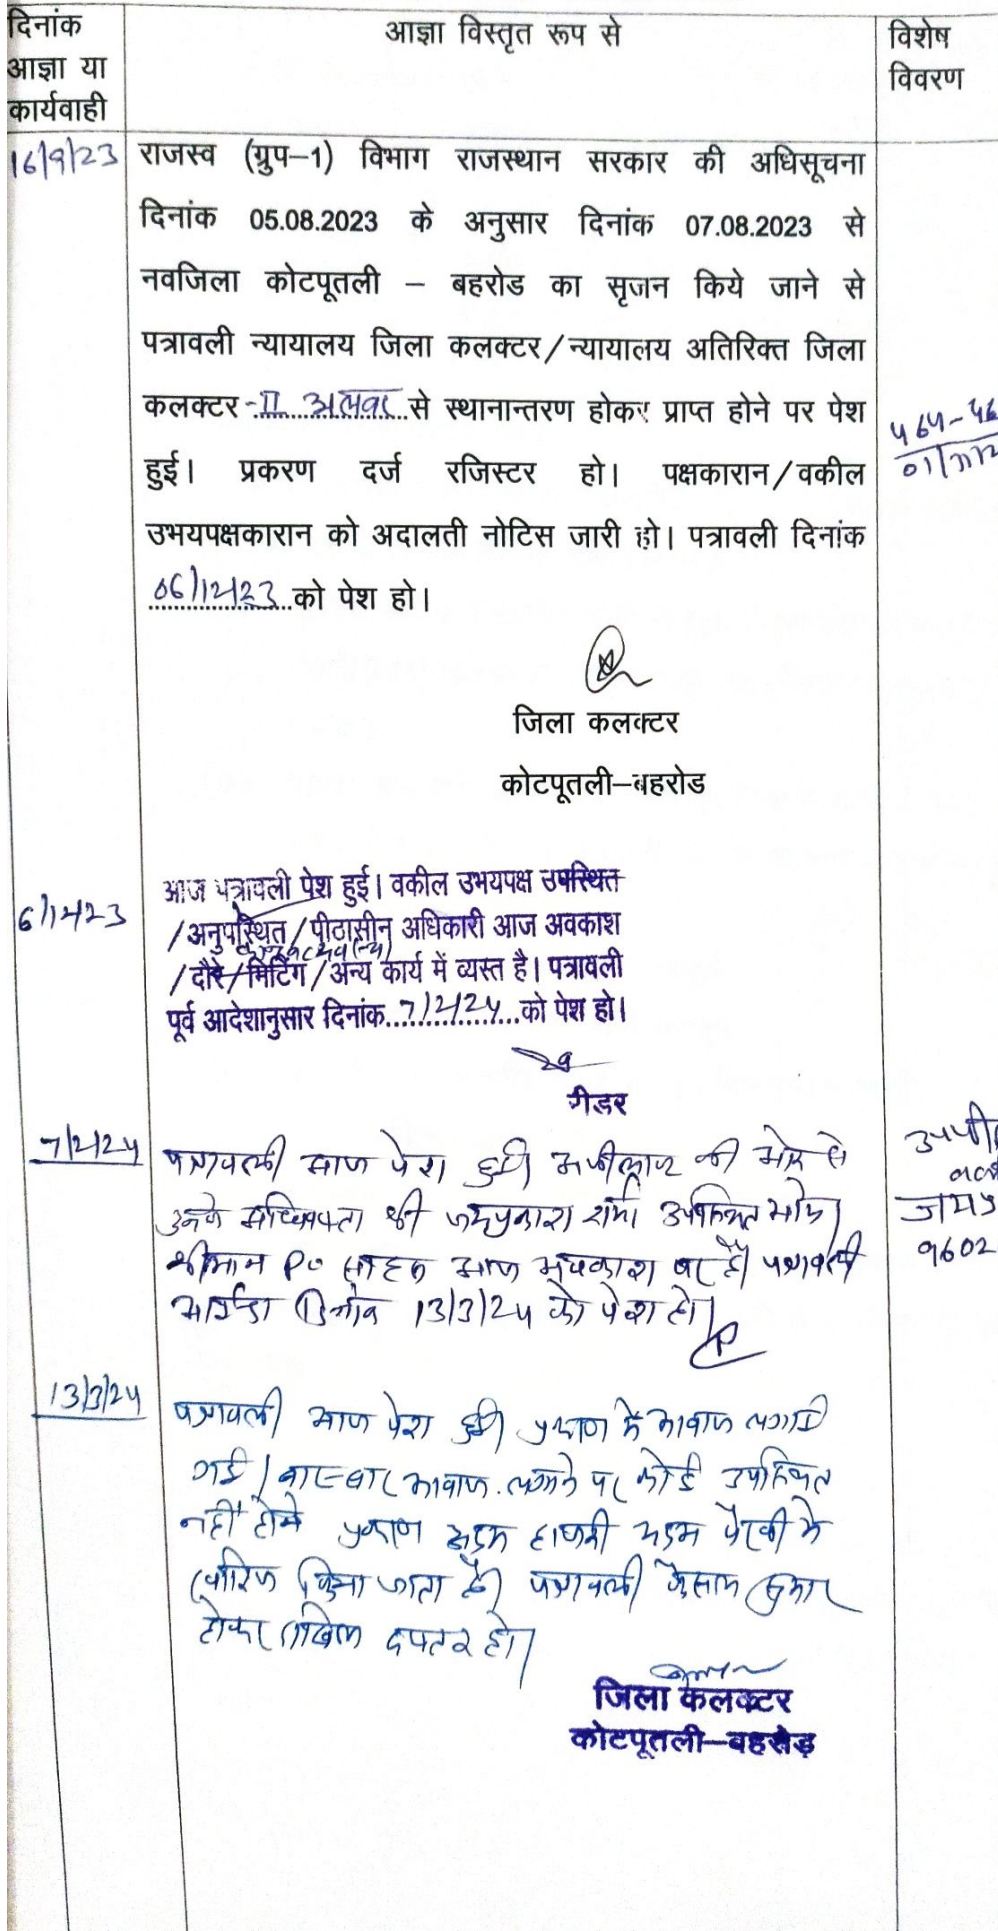 दिनांक
आज्ञा या
कार्यवाही
आज्ञा विस्तृत रूप से
विशेष
विवरण
16/9/23
राजस्व (ग्रुप–1) विभाग राजस्थान सरकार की अधिसूचना
दिनांक 05.08.2023 के अनुसार दिनांक 07.08.2023 से
नवजिला कोटपूतली – बहरोड का सृजन किये जाने से
पत्रावली न्यायालय जिला कलक्टर/न्यायालय अतिरिक्त जिला
कलक्टर-II अलवर से स्थानान्तरण होकर प्राप्त होने पर पेश
हुई। प्रकरण दर्ज रजिस्टर हो। पक्षकारान/वकील
उभयपक्षकारान को अदालती नोटिस जारी हो। पत्रावली दिनांक
06/12/23 को पेश हो।
जिला कलक्टर
कोटपूतली–बहरोड
6/12/23
आज पत्रावली पेश हुई। वकील उभयपक्ष उपस्थित
/अनुपस्थित/पीठासीन अधिकारी आज अवकाश
/दौरे/मिटिंग/अन्य कार्य में व्यस्त है। पत्रावली
पूर्व आदेशानुसार दिनांक 7/2/24 को पेश हो।
रीडर
7/2/24
पत्रावली आज पेश हुई। अपीलान्ट की ओर से
उनके अधिवक्ता श्री जयप्रकाश शर्मा उपस्थित आये।
श्रीमान PO साहब आज अवकाश पर है। पत्रावली
आईन्दा दिनांक 13/3/24 को पेश हो।
9602
13/3/24
पत्रावली आज पेश हुई। प्रकरण में आवाज लगाई
गई। बार-बार आवाज लगाने पर कोई उपस्थित
नहीं होने प्रकरण अदम हाजरी अदम पैरवी में
खारिज किया जाता है। पत्रावली फैसल शुमार
होकर दाखिल दफ्तर हो।
जिला कलक्टर
कोटपूतली–बहरोड़